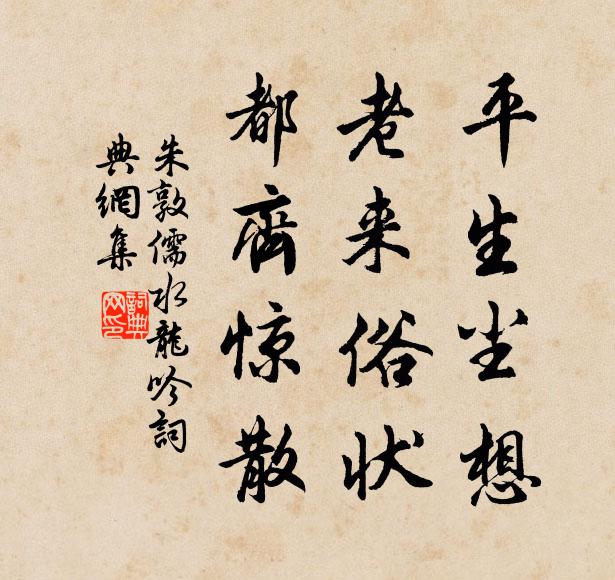 平生尘想
老来俗状
都齊惊散
朱敦儒水龍吟詞
典網集
詞典
网印